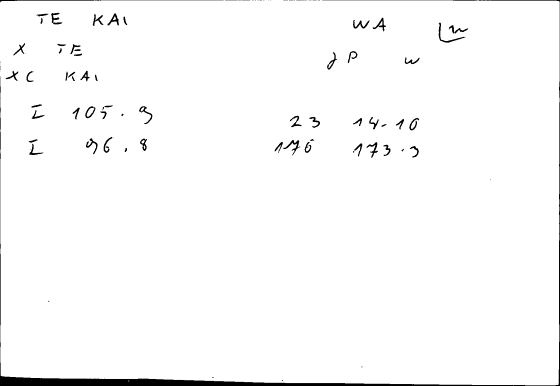 TE KAI WA
X TE JP W
XC KAI
I 105.9 23 14-10
I 96.8 176 173.3